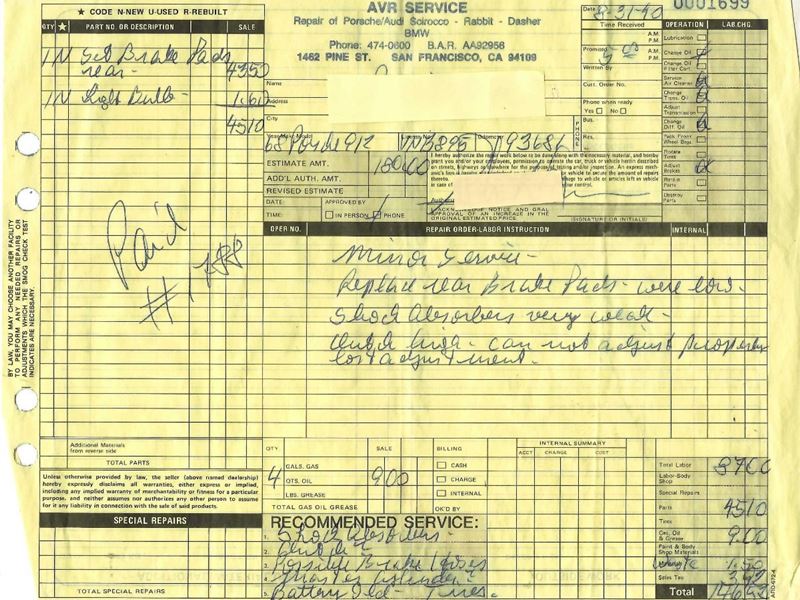 ★ CODE N-NEW U-USED R-REBUILT
QTY ★ PART NO. OR DESCRIPTION SALE
1 N Set Brake Pads
rear 43 50
1 N Light Bulb 1.60
45 10
AVR SERVICE
Repair of Porsche/Audi Scirocco - Rabbit - Dasher
BMW
Phone: 474-0600 B.A.R. AA92958
1462 PINE ST. SAN FRANCISCO, CA 94109
Date 8-31-90
Time Received
A.M.
P.M.
Promised A.M.
P.M.
Written By
Cust. Order No.
Phone when ready
Yes No
PHONE
Bus.
Res.
0001699
OPERATION LAB. CHG.
Lubrication
Change Oil
Change Oil
Filter Cart.
Service
Air Cleaner
Change
Trans. Oil
Adjust
Transmission
Change
Diff. Oil
Pack Front
Wheel Brgs.
Rotate
Tires
Adjust
Brakes
Retain
Parts
Destroy
Parts
Name
Address
City
68 Porsche 912
ESTIMATE AMT. 180.00
ADD'L AUTH. AMT.
REVISED ESTIMATE
DATE: APPROVED BY
TIME: IN PERSON PHONE
I hereby authorize the repair work below to be done along with the necessary material, and hereby
grant you and/or your employees, permission to operate the car, truck or vehicle herein described
ACKNOWLEDGE NOTICE AND ORAL
APPROVAL OF AN INCREASE IN THE
ORIGINAL ESTIMATED PRICE.
(SIGNATURE OR INITIALS)
OPER NO. REPAIR ORDER-LABOR INSTRUCTION INTERNAL
Minor Service -
Replaced rear Brake Pads - were low.
Shock Absorbers very weak -
Clutch high - can not adjust properly
lost adjustment.
Paid
BY LAW, YOU MAY CHOOSE ANOTHER FACILITY
TO PERFORM ANY NEEDED REPAIRS OR
ADJUSTMENTS WHICH THE SMOG CHECK TEST
INDICATES ARE NECESSARY.
Additional Materials
from reverse side
TOTAL PARTS
Unless otherwise provided by law, the seller (above named dealership)
hereby expressly disclaims all warranties, either express or implied,
including any implied warranty of merchantability or fitness for a particular
purpose, and neither assumes nor authorizes any other person to assume
for it any liability in connection with the sale of said products.
SPECIAL REPAIRS
TOTAL SPECIAL REPAIRS
QTY SALE
GALS. GAS
4 QTS. OIL 9.00
LBS. GREASE
TOTAL GAS OIL GREASE
BILLING
CASH
CHARGE
INTERNAL
OK'D BY
INTERNAL SUMMARY
ACCT CHARGE COST
RECOMMENDED SERVICE:
1. Shock Absorbers -
2. Clutch
3. Possible Brake Hoses
4. Master Cylinder -
5. Battery Old - Tires.
Total Labor 87.00
Labor-Body
Shop
Special Repairs
Parts 45 10
Tires
Gas, Oil
& Grease 9.00
Paint & Body
Shop Materials
Waste 1.50
Sales Tax
Total